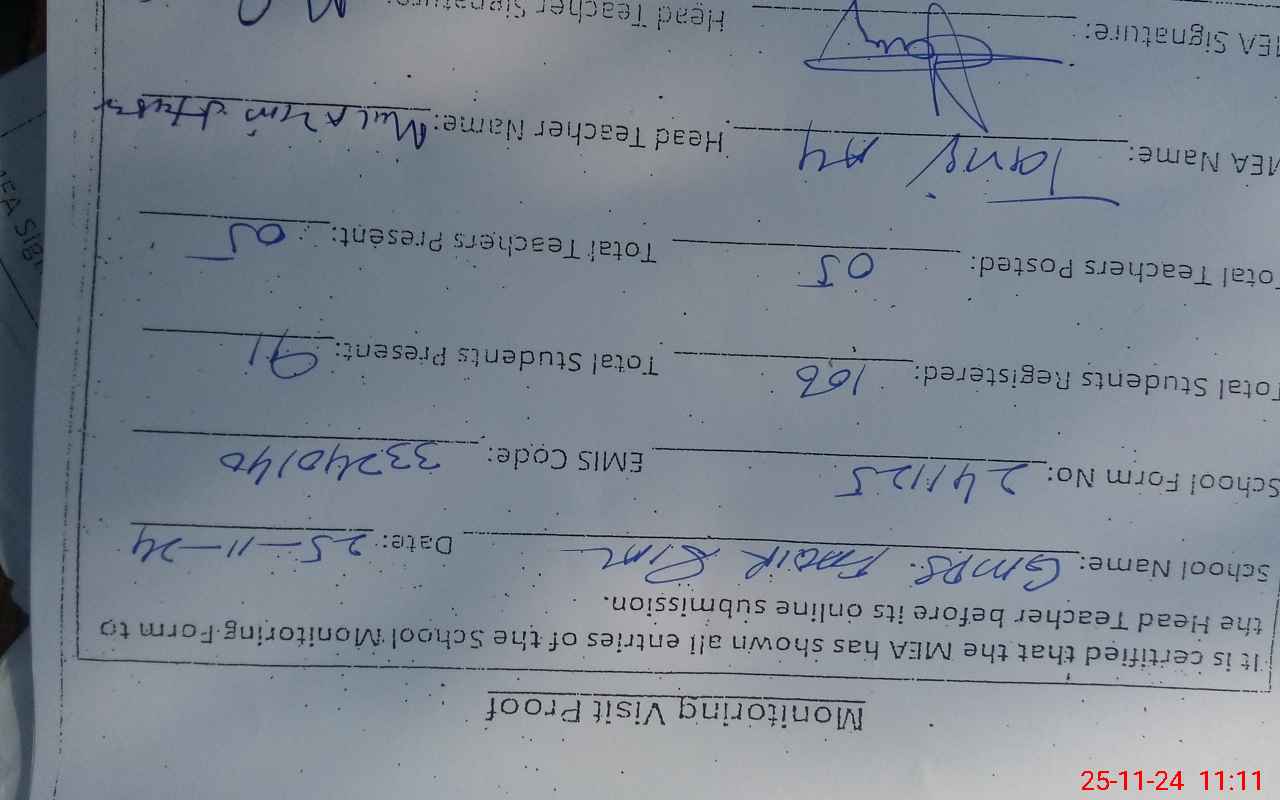 Monitoring Visit Proof
It is certified that the MEA has shown all entries of the School Monitoring Form to
the Head Teacher before its online submission.
School Name: GMPS. Date: 25-11-24
School Form No: 241125 EMIS Code: 33240140
Total Students Registered: Total Students Present: 91
Total Teachers Posted: 05 Total Teachers Present: 05
MEA Name: Head Teacher Name:
MEA Signature: Head Teacher Signature:
MEA Sign
25-11-24 11:11